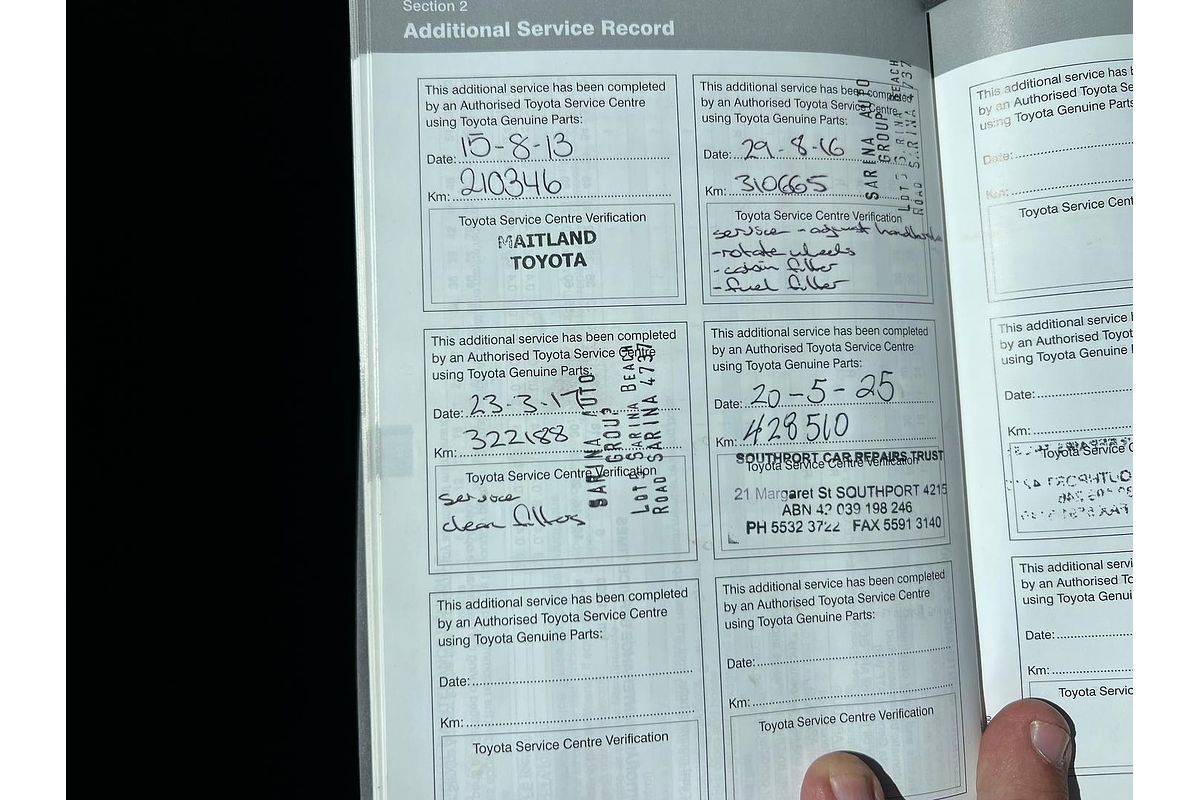 Section 2
Additional Service Record
This additional service has been completed
by an Authorised Toyota Service Centre
using Toyota Genuine Parts:
Date: 15-8-13
Km: 210346
Toyota Service Centre Verification
MAITLAND
TOYOTA
This additional service has been completed
by an Authorised Toyota Service Centre
using Toyota Genuine Parts:
Date: 29-8-16
Km: 310665
SARINA AUTO
GROUP
LOT 5 SARINA BEACH
ROAD SARINA 4737
Toyota Service Centre Verification
service - adjust handbrake
- rotate wheels
- cabin filter
- fuel filter
This additional service has been completed
by an Authorised Toyota Service Centre
using Toyota Genuine Parts:
Date: 23-3-17
Km: 322188
SARINA AUTO
GROUP
LOT 5 SARINA BEACH
ROAD SARINA 4737
Toyota Service Centre Verification
service
clean filters
This additional service has been completed
by an Authorised Toyota Service Centre
using Toyota Genuine Parts:
Date: 20-5-25
Km: 428510
SOUTHPORT CAR REPAIRS TRUST
Toyota Service Centre Verification
21 Margaret St SOUTHPORT 4215
ABN 42 039 198 246
PH 5532 3722 FAX 5591 3140
This additional service has been completed
by an Authorised Toyota Service Centre
using Toyota Genuine Parts:
Date:
Km:
Toyota Service Centre Verification
This additional service has been completed
by an Authorised Toyota Service Centre
using Toyota Genuine Parts:
Date:
Km:
Toyota Service Centre Verification
This additional service has b
by an Authorised Toyota Se
using Toyota Genuine Parts
Date:
Km:
Toyota Service Cent
This additional service
by an Authorised Toyot
using Toyota Genuine
Date:
Km:
Toyota Service C
This additional servi
by an Authorised To
using Toyota Genui
Date:
Km:
Toyota Servic